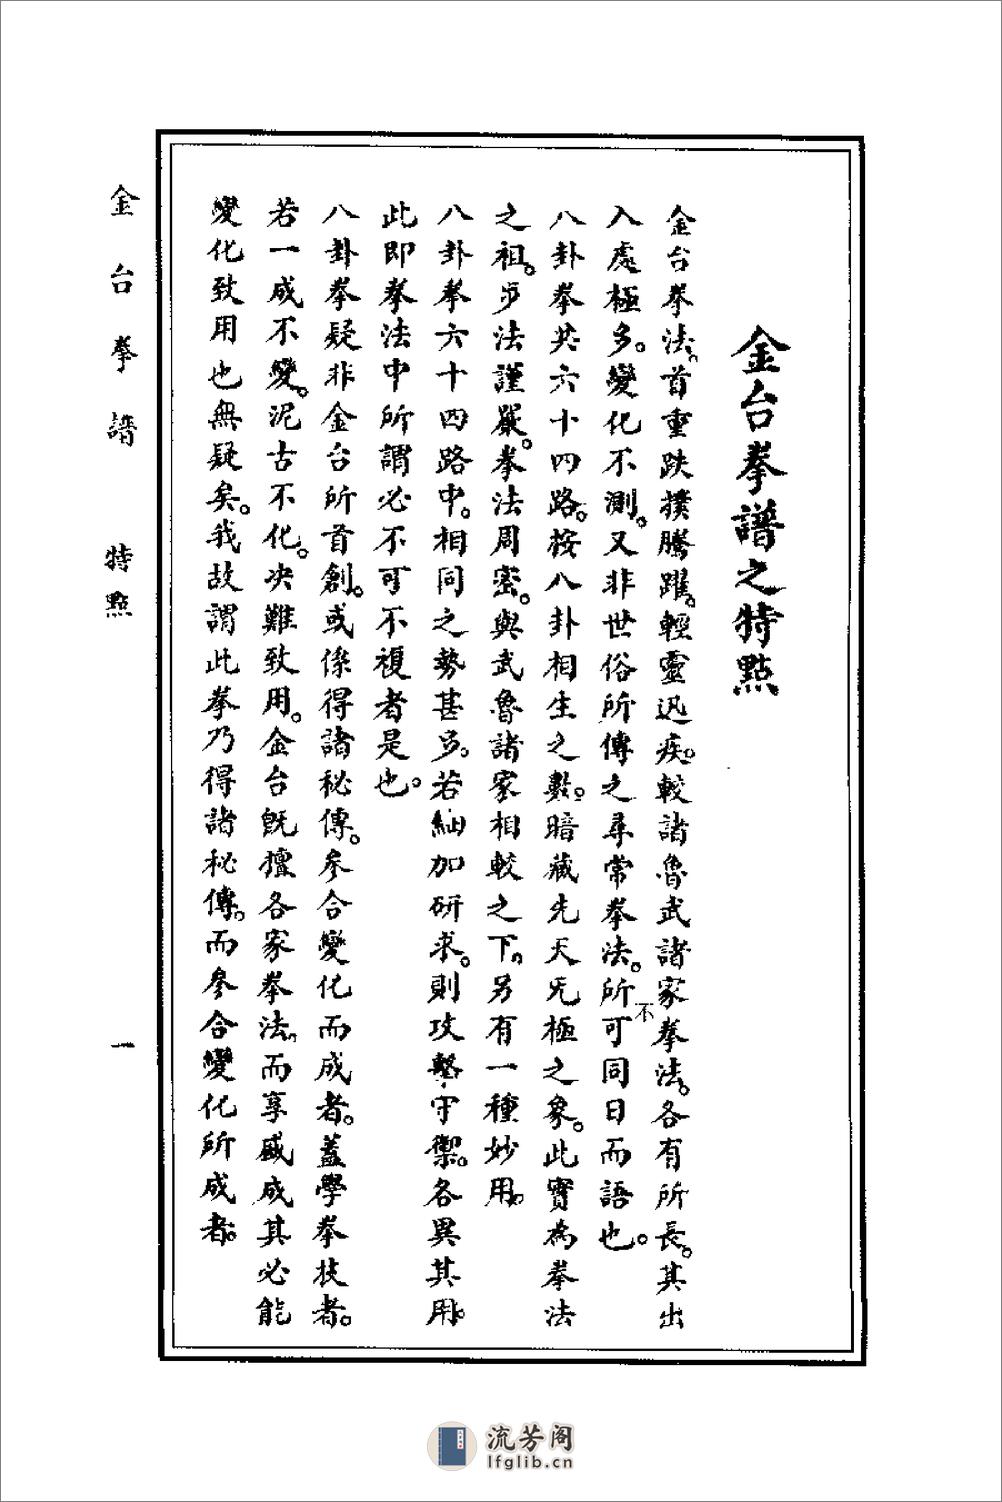 金台拳譜之特點
金台拳法。首重跌撲騰躍。輕靈迅疾。較諸魯武諸家拳法。各有所長。其出
入處極多。變化不測。又非世俗所傳之尋常拳法。所不可同日而語也。
八卦拳共六十四路。按八卦相生之數。暗藏先天旡極之象。此實為拳法
之祖。步法謹嚴。拳法周密。與武魯諸家相較之下。另有一種妙用。
八卦拳六十四路中。相同之勢甚多。若細加研求。則攻擊守禦。各異其用。
此即拳法中所謂必不可不複者是也。
八卦拳疑非金台所首創。或係得諸秘傳。參合變化而成者。蓋學拳技者。
若一成不變。泥古不化。決難致用。金台既擅各家拳法。而享盛成其必能
變化致用也無疑矣。我故謂此拳乃得諸秘傳。而參合變化所成者。
金台拳譜 特點 一
流芳阁
lfglib.cn